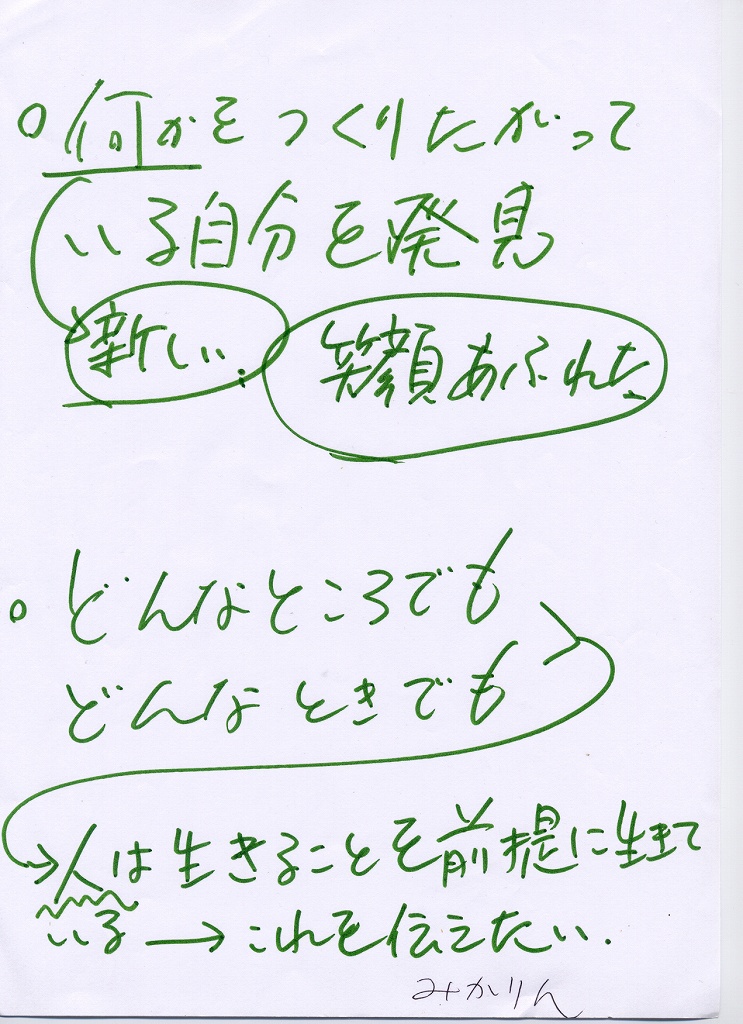 ○ 何かをつくりたがって
いる自分を発見
新しい. 笑顔あふれた
○ どんなところでも
どんなときでも
→人は生きることを前提に生きて
いる → これを伝えたい.
みかりん